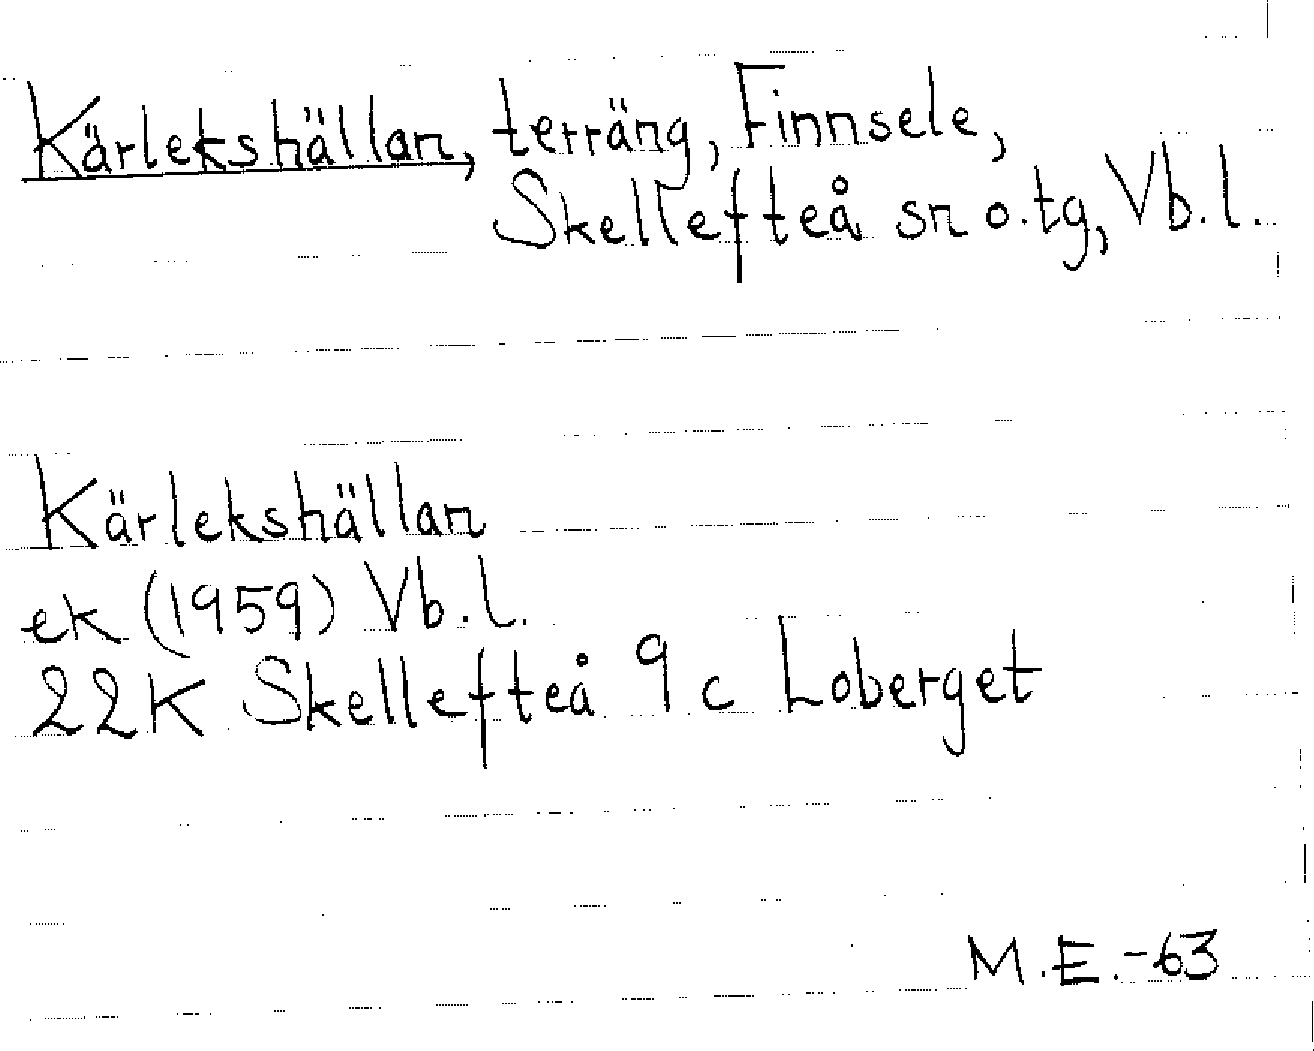 Kärlekshällan, terräng, Finnsele,
Skellefteå sn o. tg, Vb. l.
Kärlekshällan
ek (1959) Vb. l.
22K Skellefteå 9 c Loberget
M.E.-63